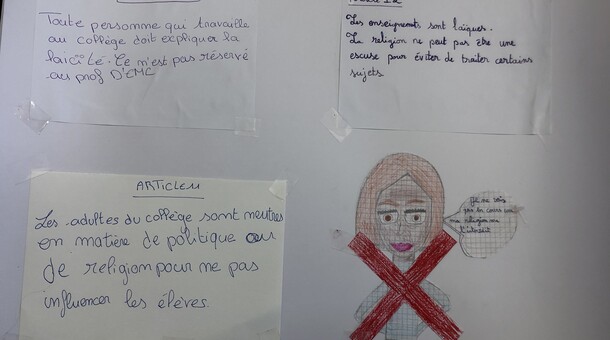 Toute personne qui travaille
au collège doit expliquer la
laïcité. Ce n'est pas réservé
au prof D'EMC
Les enseignements sont laïques.
La religion ne peut pas être une
excuse pour éviter de traiter certains
sujets
ARTICLE 11
Les adultes du collège sont neutres
en matière de politique ou
de religion pour ne pas
influencer les élèves
Je ne vais
pas en cours car
ma religion me
l'interdit